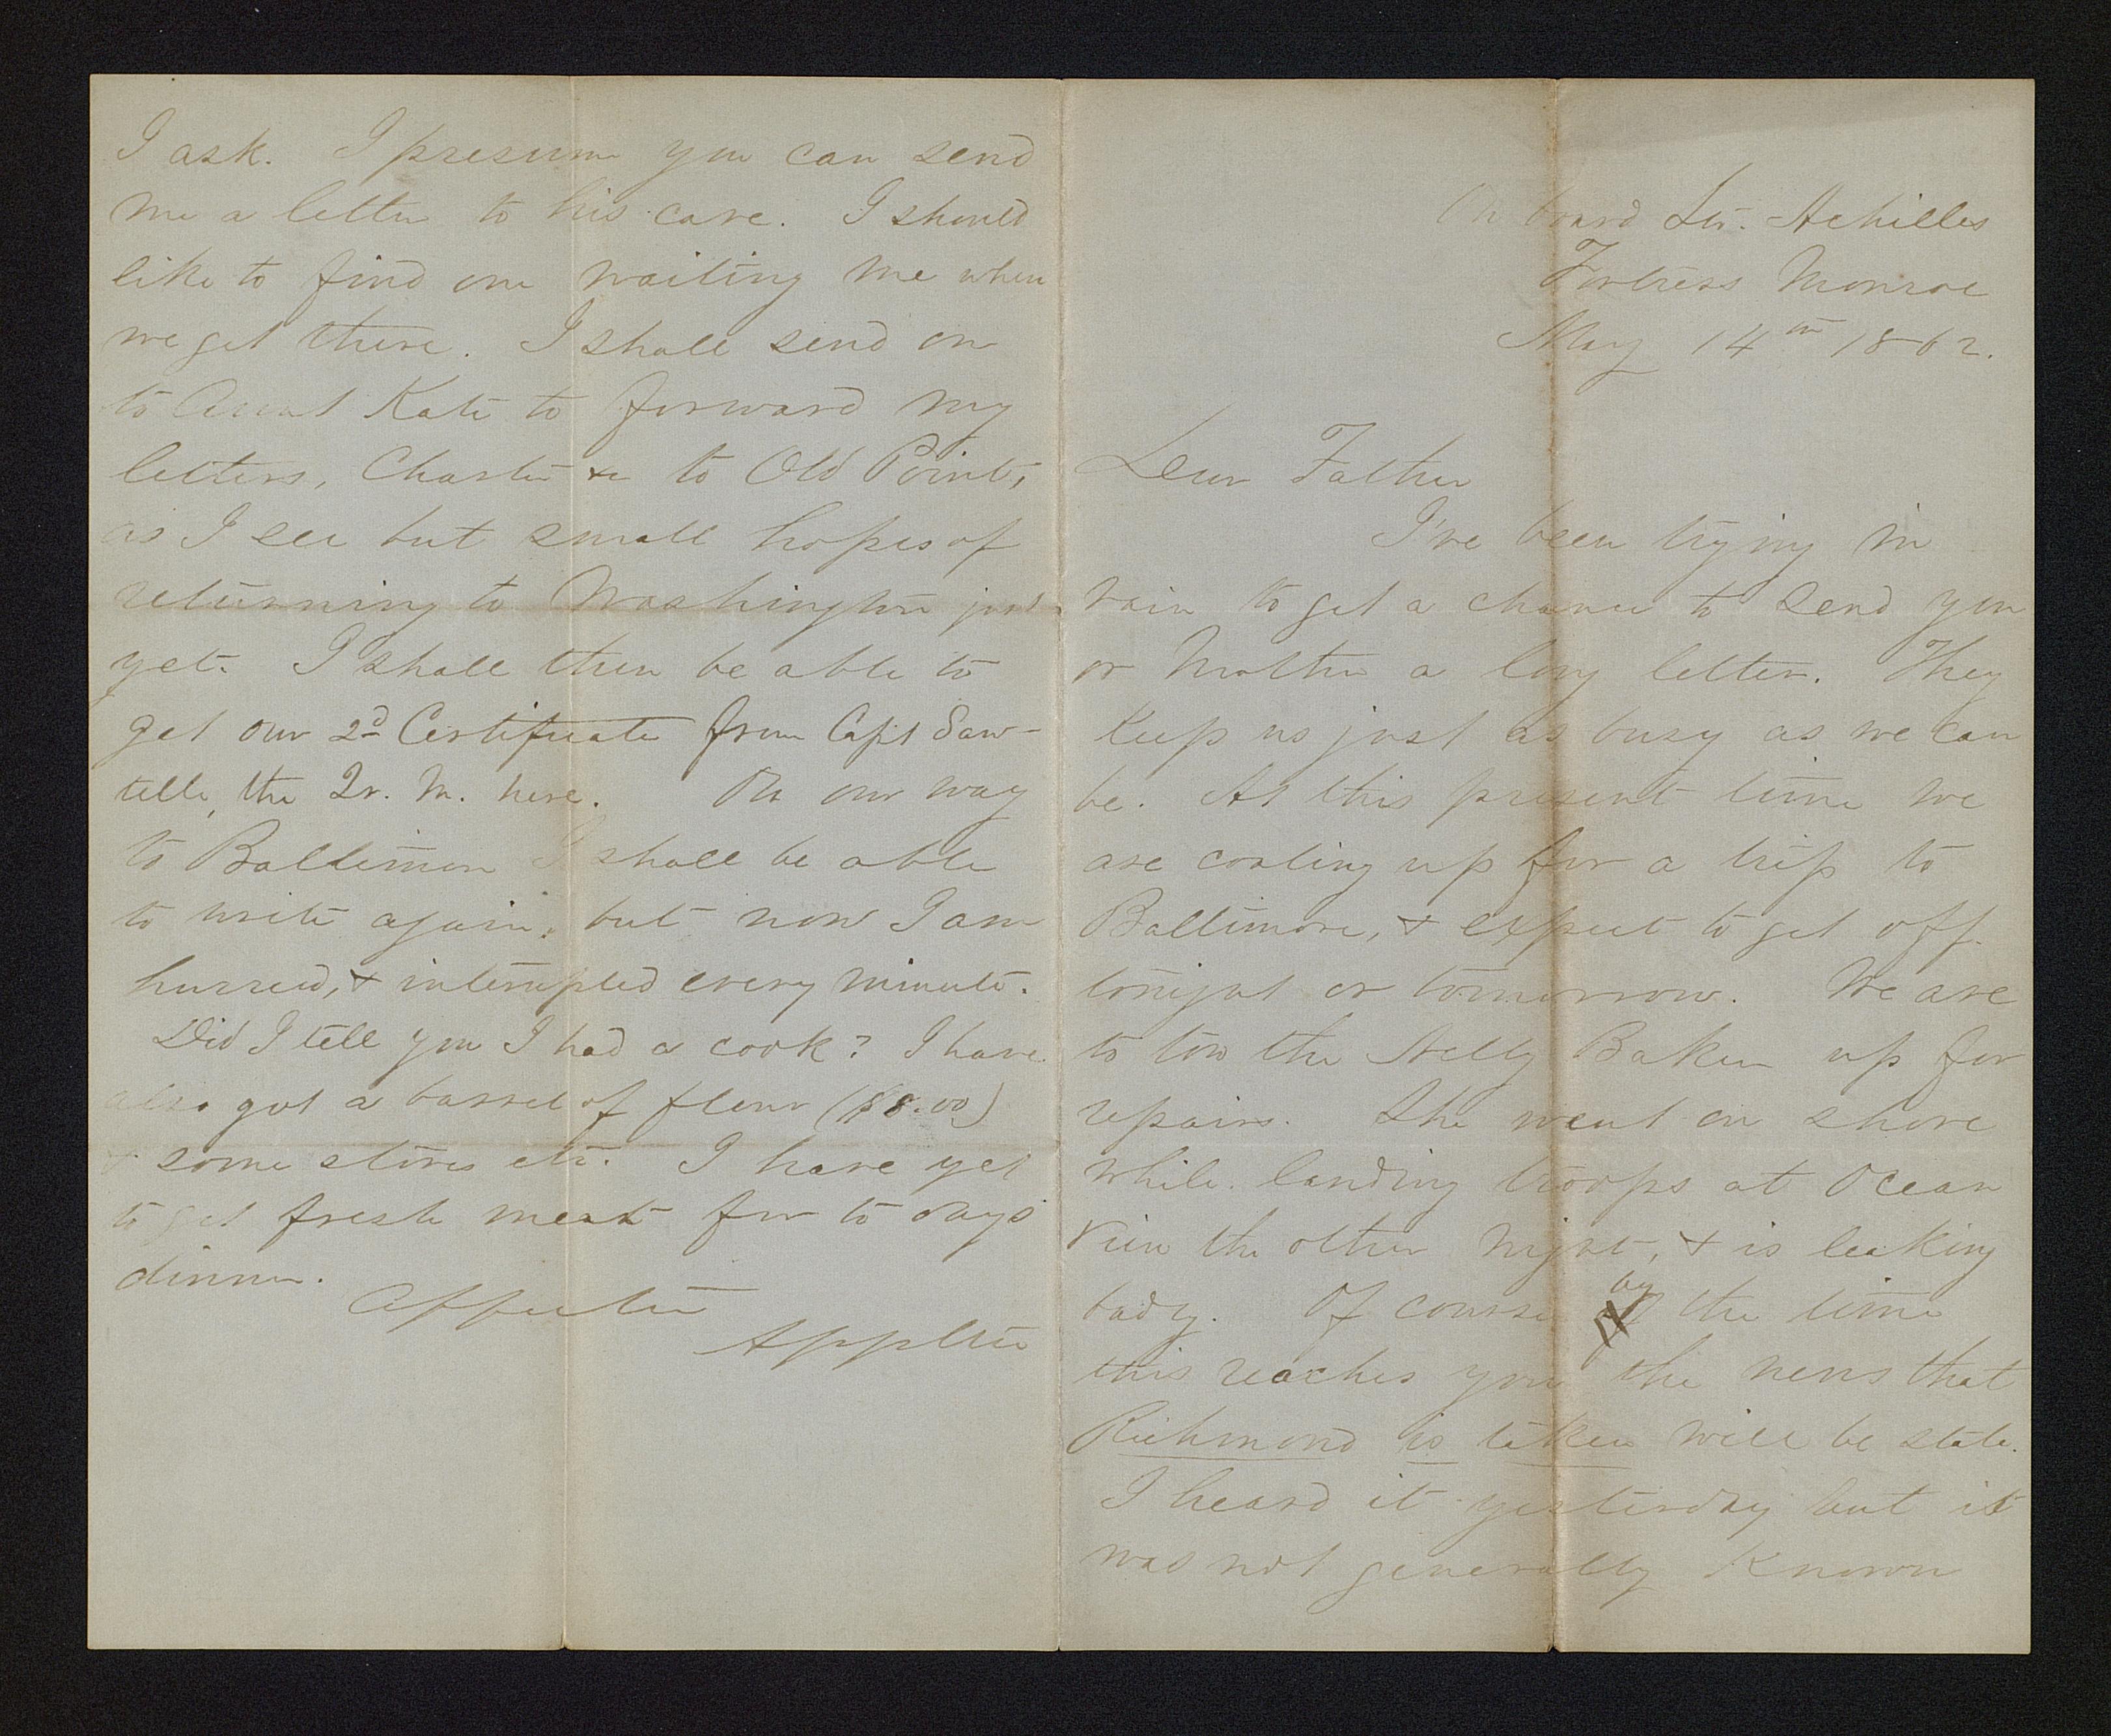 On board Str. Achilles
Fortress Monroe
May 14th 1862.
Dear Father
I've been trying in
vain to get a chance to send you
or Mother a long letter. They
keep us just as busy as we can
be. At this present time we
are coaling up for a trip to
Baltimore, & expect to get off
tonight or tomorrow. We are
to tow the Nelly Baker up for
repairs. She went on shore
while landing troops at Ocean
View the other night, & is leaking
badly. Of course by the time
this reaches you the news that
Richmond is taken will be stale.
I heard it yesterday but it
was not generally known
I ask. I presume you can send
me a letter to his care. I should
like to find one waiting me when
we get there. I shall send on
to Aunt Kate to forward my
letters, Charter &c to Old Point,
as I see but small hopes of
returning to Washington just
yet. I shall then be able to
get our 2d Certificate from Capt Saw-
telle, the Qr. M. here. On our way
to Baltimore I shall be able
to write again, but now I am
hurried, & interrupted every minute.
Did I tell you I had a cook? I have
also got a barrel of flour ($8.00)
& some stores etc. I have yet
to get fresh meat for to days
dinner.
Affectn
Appltn